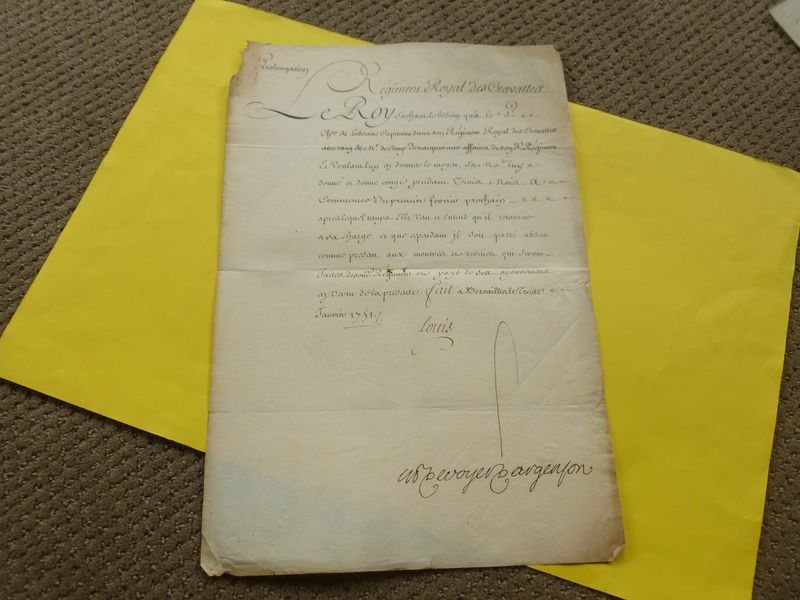 Prolongation
Régiment Royal des Cravattes
Le Roy sachant le besoin qu'a le S.
Chər de Lubersac Capitaine dans son Régiment Royal des Cravattes
avec rang de M. de Camp de vacquer aux affaires de son d. Régiment
Et Voulant luy en donner le moyen, Sa Ma.té luy a
donné et donne congé pendant Trois Mois A
Commencer Du premier février prochain
apres lequel temps Elle Veut et Entend qu'il retourne
a sa charge et que cependant il soit passé absent
comme present aux montres et reveües qui seront
faites de son d. Régiment et payé de ses apointemens
en vertu de la presente. fait a Versailles le Trente
Janvier 1751./.
Louis
M P De voyer D'argenson